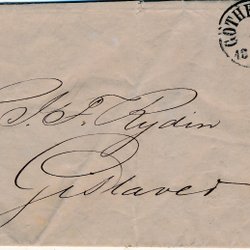 GÖTHE
18
S. F. Rydin
Gislaved